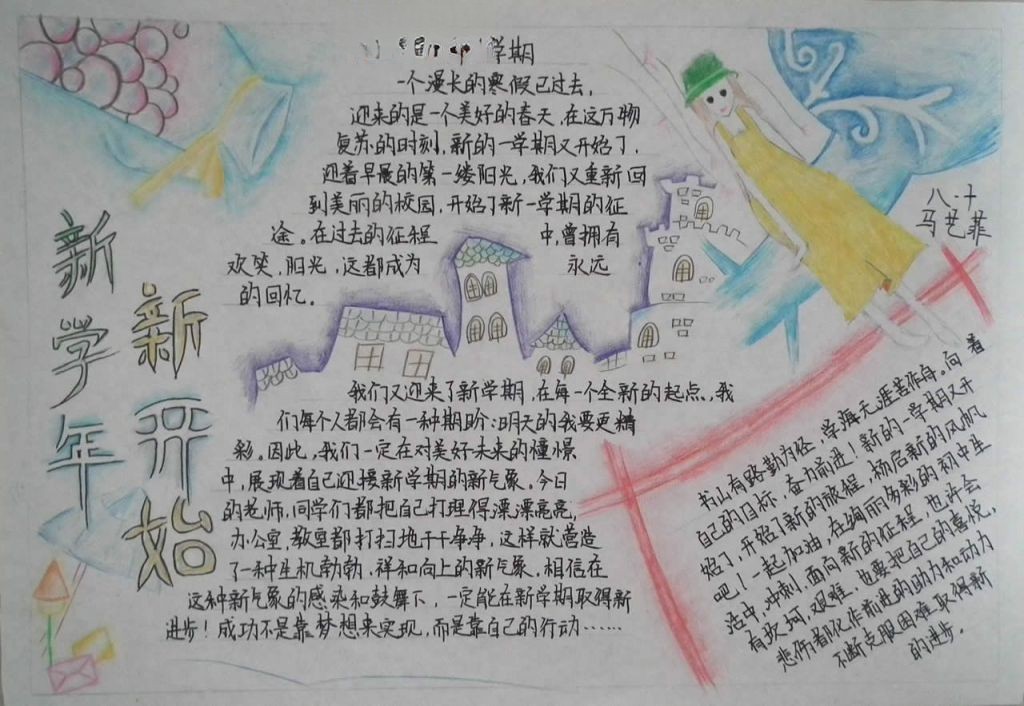 学期
一个漫长的寒假已过去，
迎来的是一个美好的春天，在这万物
复苏的时刻，新的一学期又开始了，
迎着早晨的第一缕阳光，我们又重新回
到美丽的校园，开始了新一学期的征
途。在过去的征程中，曾拥有
欢笑，阳光，这都成为永远
的回忆。
新学年
新开始
八.十
马艺菲
我们又迎来了新学期，在每一个全新的起点，我
们每个人都会有一种期盼：明天的我要更精
彩。因此，我们一定在对美好未来的憧憬
中，展现着自己迎接新学期的新气象。今日
的老师，同学们都把自己打理得漂漂亮亮，
办公室，教室都打扫地干干净净，这样就营造
了一种生机勃勃，祥和向上的新气象。相信在
这种新气象的感染和鼓舞下，一定能在新学期取得新
进步！成功不是靠梦想来实现，而是靠自己的行动……
书山有路勤为径，学海无涯苦作舟。向着
自己的目标，奋力前进！新的一学期又开
始了，开始了新的旅程，扬启新的风帆
吧！一起加油，在绚丽多彩的初中生
活中，冲刺，面向新的征程，也许会
有坎坷，艰难，也要把自己的喜悦，
悲伤都化作前进的助力和动力
不断克服困难取得新
的进步。